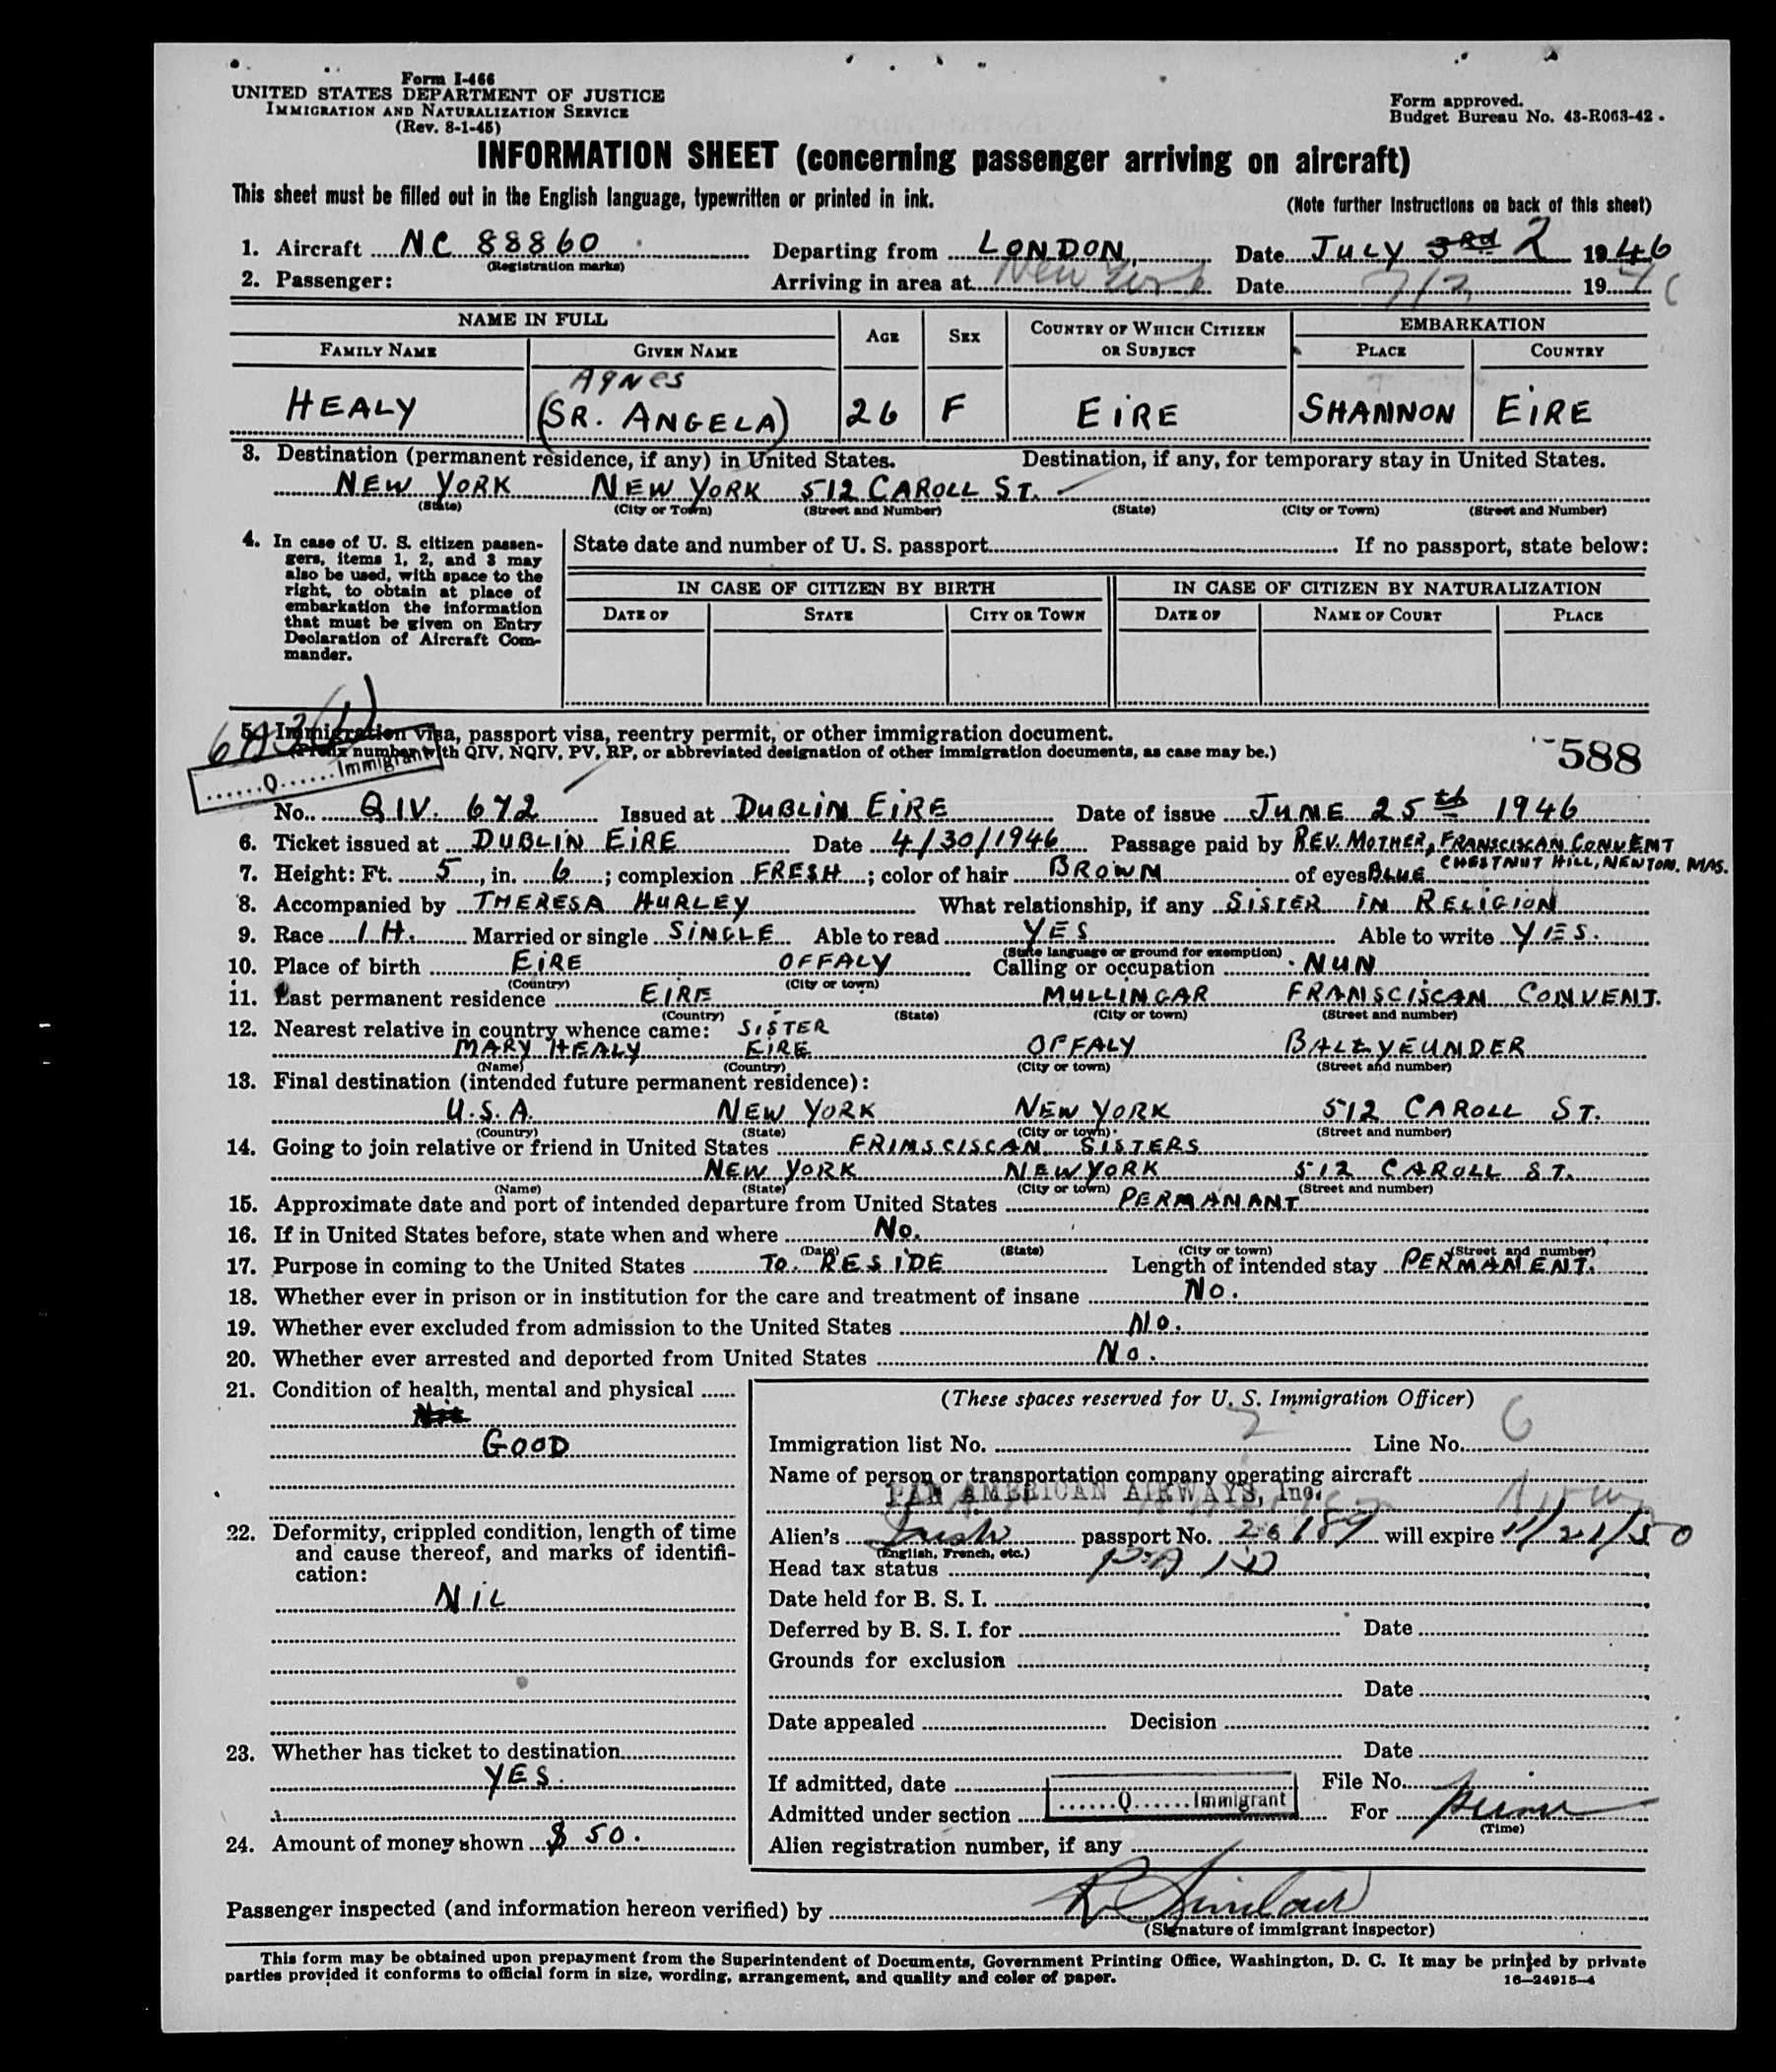 Form I-466
UNITED STATES DEPARTMENT OF JUSTICE
IMMIGRATION AND NATURALIZATION SERVICE
(Rev. 8-1-45)
Form approved.
Budget Bureau No. 43-R063-42.
INFORMATION SHEET (concerning passenger arriving on aircraft)
This sheet must be filled out in the English language, typewritten or printed in ink.
(Note further instructions on back of this sheet)
1. Aircraft NC 88860 Departing from LONDON Date JULY 3rd 2 1946
(Registration marks)
2. Passenger: Arriving in area at New York Date 7/2 1946
NAME IN FULL
FAMILY NAME GIVEN NAME AGE SEX COUNTRY OF WHICH CITIZEN OR SUBJECT EMBARKATION PLACE COUNTRY
AGNES
HEALY (SR. ANGELA) 26 F EIRE SHANNON EIRE
3. Destination (permanent residence, if any) in United States. Destination, if any, for temporary stay in United States.
NEW YORK NEW YORK 512 CAROLL ST.
(State) (City or Town) (Street and Number) (State) (City or Town) (Street and Number)
4. In case of U. S. citizen passengers, items 1, 2, and 3 may also be used, with space to the right, to obtain at place of embarkation the information that must be given on Entry Declaration of Aircraft Commander.
State date and number of U. S. passport If no passport, state below:
IN CASE OF CITIZEN BY BIRTH IN CASE OF CITIZEN BY NATURALIZATION
DATE OF STATE CITY OR TOWN DATE OF NAME OF COURT PLACE
5. Immigration visa, passport visa, reentry permit, or other immigration document.
(Prefix number with QIV, NQIV, PV, RP, or abbreviated designation of other immigration documents, as case may be.)
588
Q Immigrant
No. QIV. 672 Issued at DUBLIN EIRE Date of issue JUNE 25th 1946
6. Ticket issued at DUBLIN EIRE Date 4/30/1946 Passage paid by REV. MOTHER, FRANSCISCAN CONVENT
CHESTNUT HILL, NEWTON. MAS.
7. Height: Ft. 5, in. 6; complexion FRESH; color of hair BROWN of eyes BLUE
8. Accompanied by THERESA HURLEY What relationship, if any SISTER IN RELIGION
9. Race I H. Married or single SINGLE Able to read YES Able to write YES.
(State language or ground for exemption)
10. Place of birth EIRE OFFALY Calling or occupation NUN
(Country) (City or town)
11. Last permanent residence EIRE MULLINGAR FRANSCISCAN CONVENT.
(Country) (State) (City or town) (Street and number)
12. Nearest relative in country whence came: SISTER
MARY HEALY EIRE OFFALY BALLYEUNDER
(Name) (Country) (City or town) (Street and number)
13. Final destination (intended future permanent residence):
U.S.A. NEW YORK NEW YORK 512 CAROLL ST.
(Country) (State) (City or town) (Street and number)
14. Going to join relative or friend in United States FRIMSCISCAN SISTERS
NEW YORK NEW YORK 512 CAROLL ST.
(Name) (State) (City or town) (Street and number)
15. Approximate date and port of intended departure from United States PERMANANT
16. If in United States before, state when and where No.
(Date) (State) (City or town) (Street and number)
17. Purpose in coming to the United States TO RESIDE Length of intended stay PERMANENT.
18. Whether ever in prison or in institution for the care and treatment of insane No.
19. Whether ever excluded from admission to the United States No.
20. Whether ever arrested and deported from United States No.
21. Condition of health, mental and physical
GOOD
22. Deformity, crippled condition, length of time and cause thereof, and marks of identification:
NIL
23. Whether has ticket to destination
YES.
24. Amount of money shown $ 50.
(These spaces reserved for U. S. Immigration Officer)
Immigration list No. 2 Line No. 6
Name of person or transportation company operating aircraft
PAN AMERICAN AIRWAYS, Inc.
Alien's Irish passport No. 26189 will expire 11/21/50
(English, French, etc.)
Head tax status PAID
Date held for B. S. I.
Deferred by B. S. I. for Date
Grounds for exclusion
Date
Date appealed Decision
Date
If admitted, date File No.
Admitted under section Q Immigrant For perm
(Time)
Alien registration number, if any
Passenger inspected (and information hereon verified) by R Sinclair
(Signature of immigrant inspector)
This form may be obtained upon prepayment from the Superintendent of Documents, Government Printing Office, Washington, D. C. It may be printed by private
parties provided it conforms to official form in size, wording, arrangement, and quality and color of paper.
16—24915-4